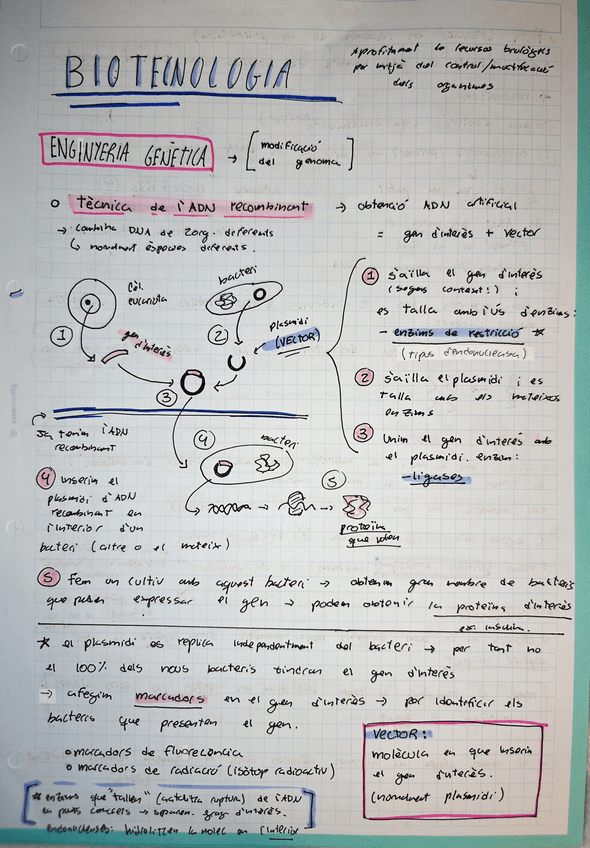 BIOTECNOLOGIA
Aprofitament de recursos biològics
per mitjà del control/modificació
dels organismes
ENGINYERIA GENÈTICA → [modificació
del genoma]
o tècnica de l'ADN recombinant → obtenció ADN artificial
→ combina DNA de 2 org. diferents = gen d'interès + vector
↳ normalment espècies diferents.
Cèl.
eucariota
bacteri
gen
d'interès
plasmidi
(VECTOR)
1
2
3
① s'aïlla el gen d'interès
(segons context!) i
es talla amb ús d'enzims:
- enzims de restricció *
(tipus d'endonucleasa)
② s'aïlla el plasmidi i es
talla amb els mateixos
enzims
③ Unim el gen d'interès amb
el plasmidi. enzim:
- ligases
Ja tenim l'ADN
recombinant
4
bacteri
5
proteïna
que volem
④ Inserim el
plasmidi d'ADN
recombinant en
l'interior d'un
bacteri (altre o el mateix)
⑤ Fem un cultiu amb aquest bacteri → obtenim gran nombre de bacteris
que poden expressar el gen → podem obtenir la proteïna d'interès
ex. insulina.
* el plasmidi es replica independentment del bacteri → per tant no
el 100% dels nous bacteris tindran el gen d'interès
→ afegim marcadors en el gen d'interès → per identificar els
bacteris que presenten el gen.
o marcadors de fluorecència
o marcadors de radiació (isòtop radioactiu)
VECTOR:
molècula en que inserim
el gen d'interès.
(normalment plasmidi)
* enzims que "tallen" (catalitza ruptura) de l'ADN
en punts concrets → separen. frag. d'interès.
endonucleases: hidrolitzen la molèc en l'interior